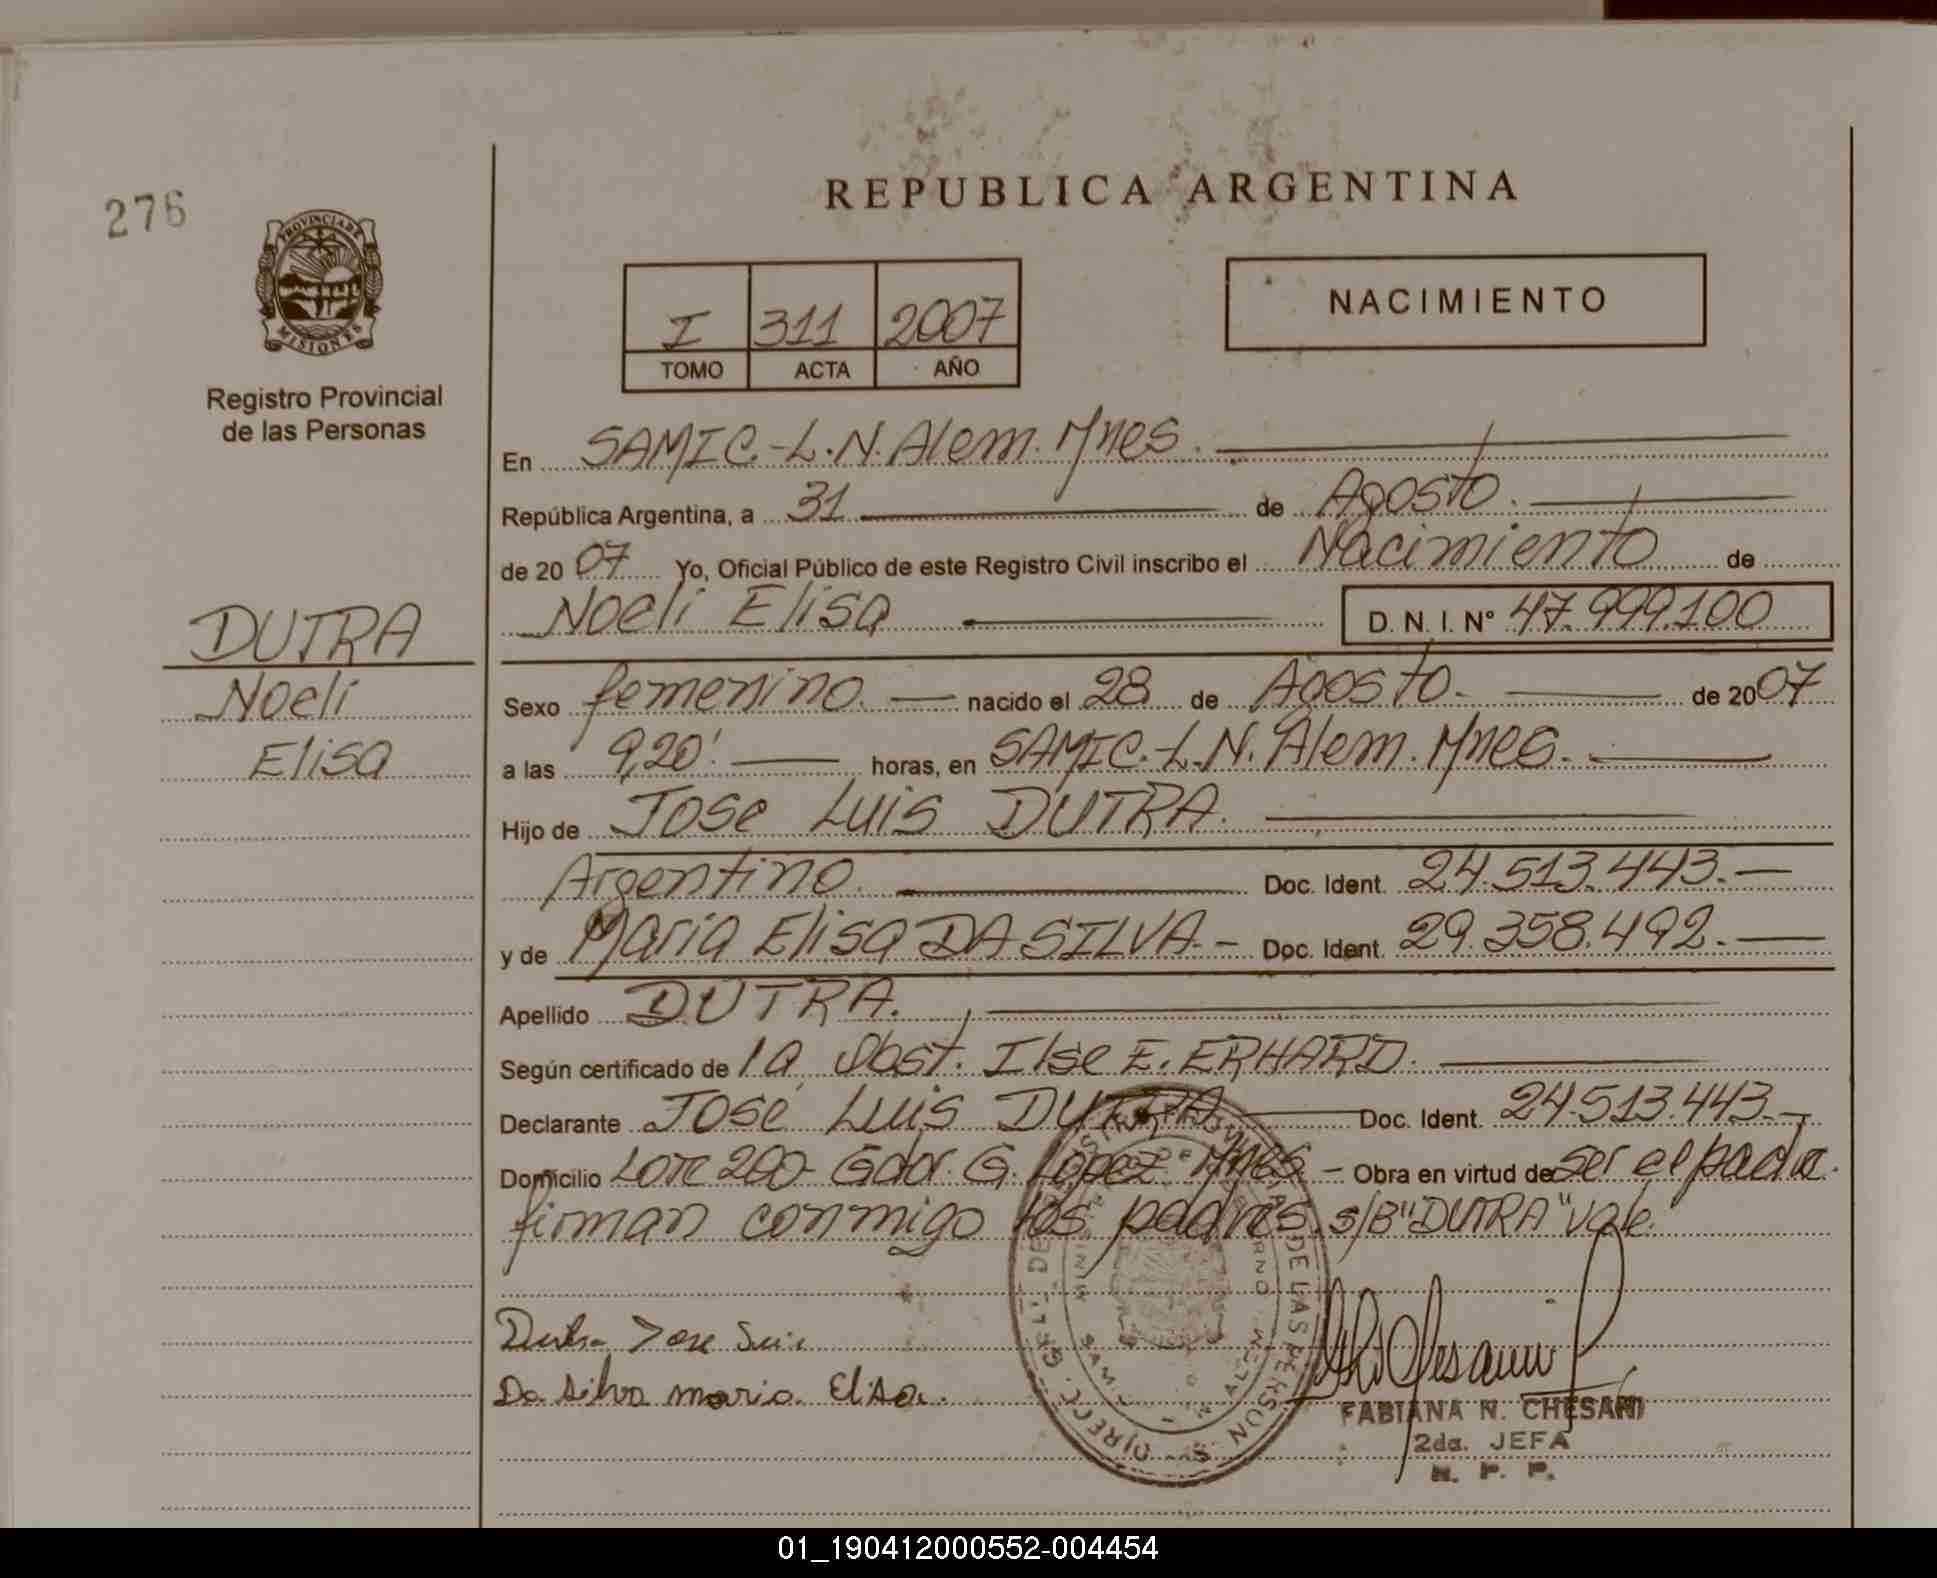 276
PROVINCIA DE
MISIONES
Registro Provincial
de las Personas
DUTRA
Noeli
Elisa
REPUBLICA ARGENTINA
I 311 2007
TOMO ACTA AÑO
NACIMIENTO
En SAMIC.-L.N.Alem.Mnes.
República Argentina, a 31 de Agosto.
de 2007 Yo, Oficial Público de este Registro Civil inscribo el Nacimiento de
Noeli Elisa D.N.I.Nº 47.999.100
Sexo femenino. nacido el 28 de Agosto. de 2007
a las 9,20' horas, en SAMIC.-L.N.Alem.Mnes.
Hijo de Jose Luis DUTRA.
Argentino. Doc. Ident. 24.513.443.—
y de Maria Elisa DA SILVA.- Doc. Ident. 29.358.492.—
Apellido DUTRA.
Según certificado de la Obst. Ilse E. ERHARD.
Declarante José Luis DUTRA Doc. Ident. 24.513.443.-
Domicilio Lote 200 Gdor. G. López Mnes.- Obra en virtud de ser el padre.
firman conmigo los padres. s/B"DUTRA"vale.
Dutra Jose Luis
Da silva maria Elisa.
FABIANA N. CHESANI
2da. JEFA
R. P. P.
01_190412000552-004454